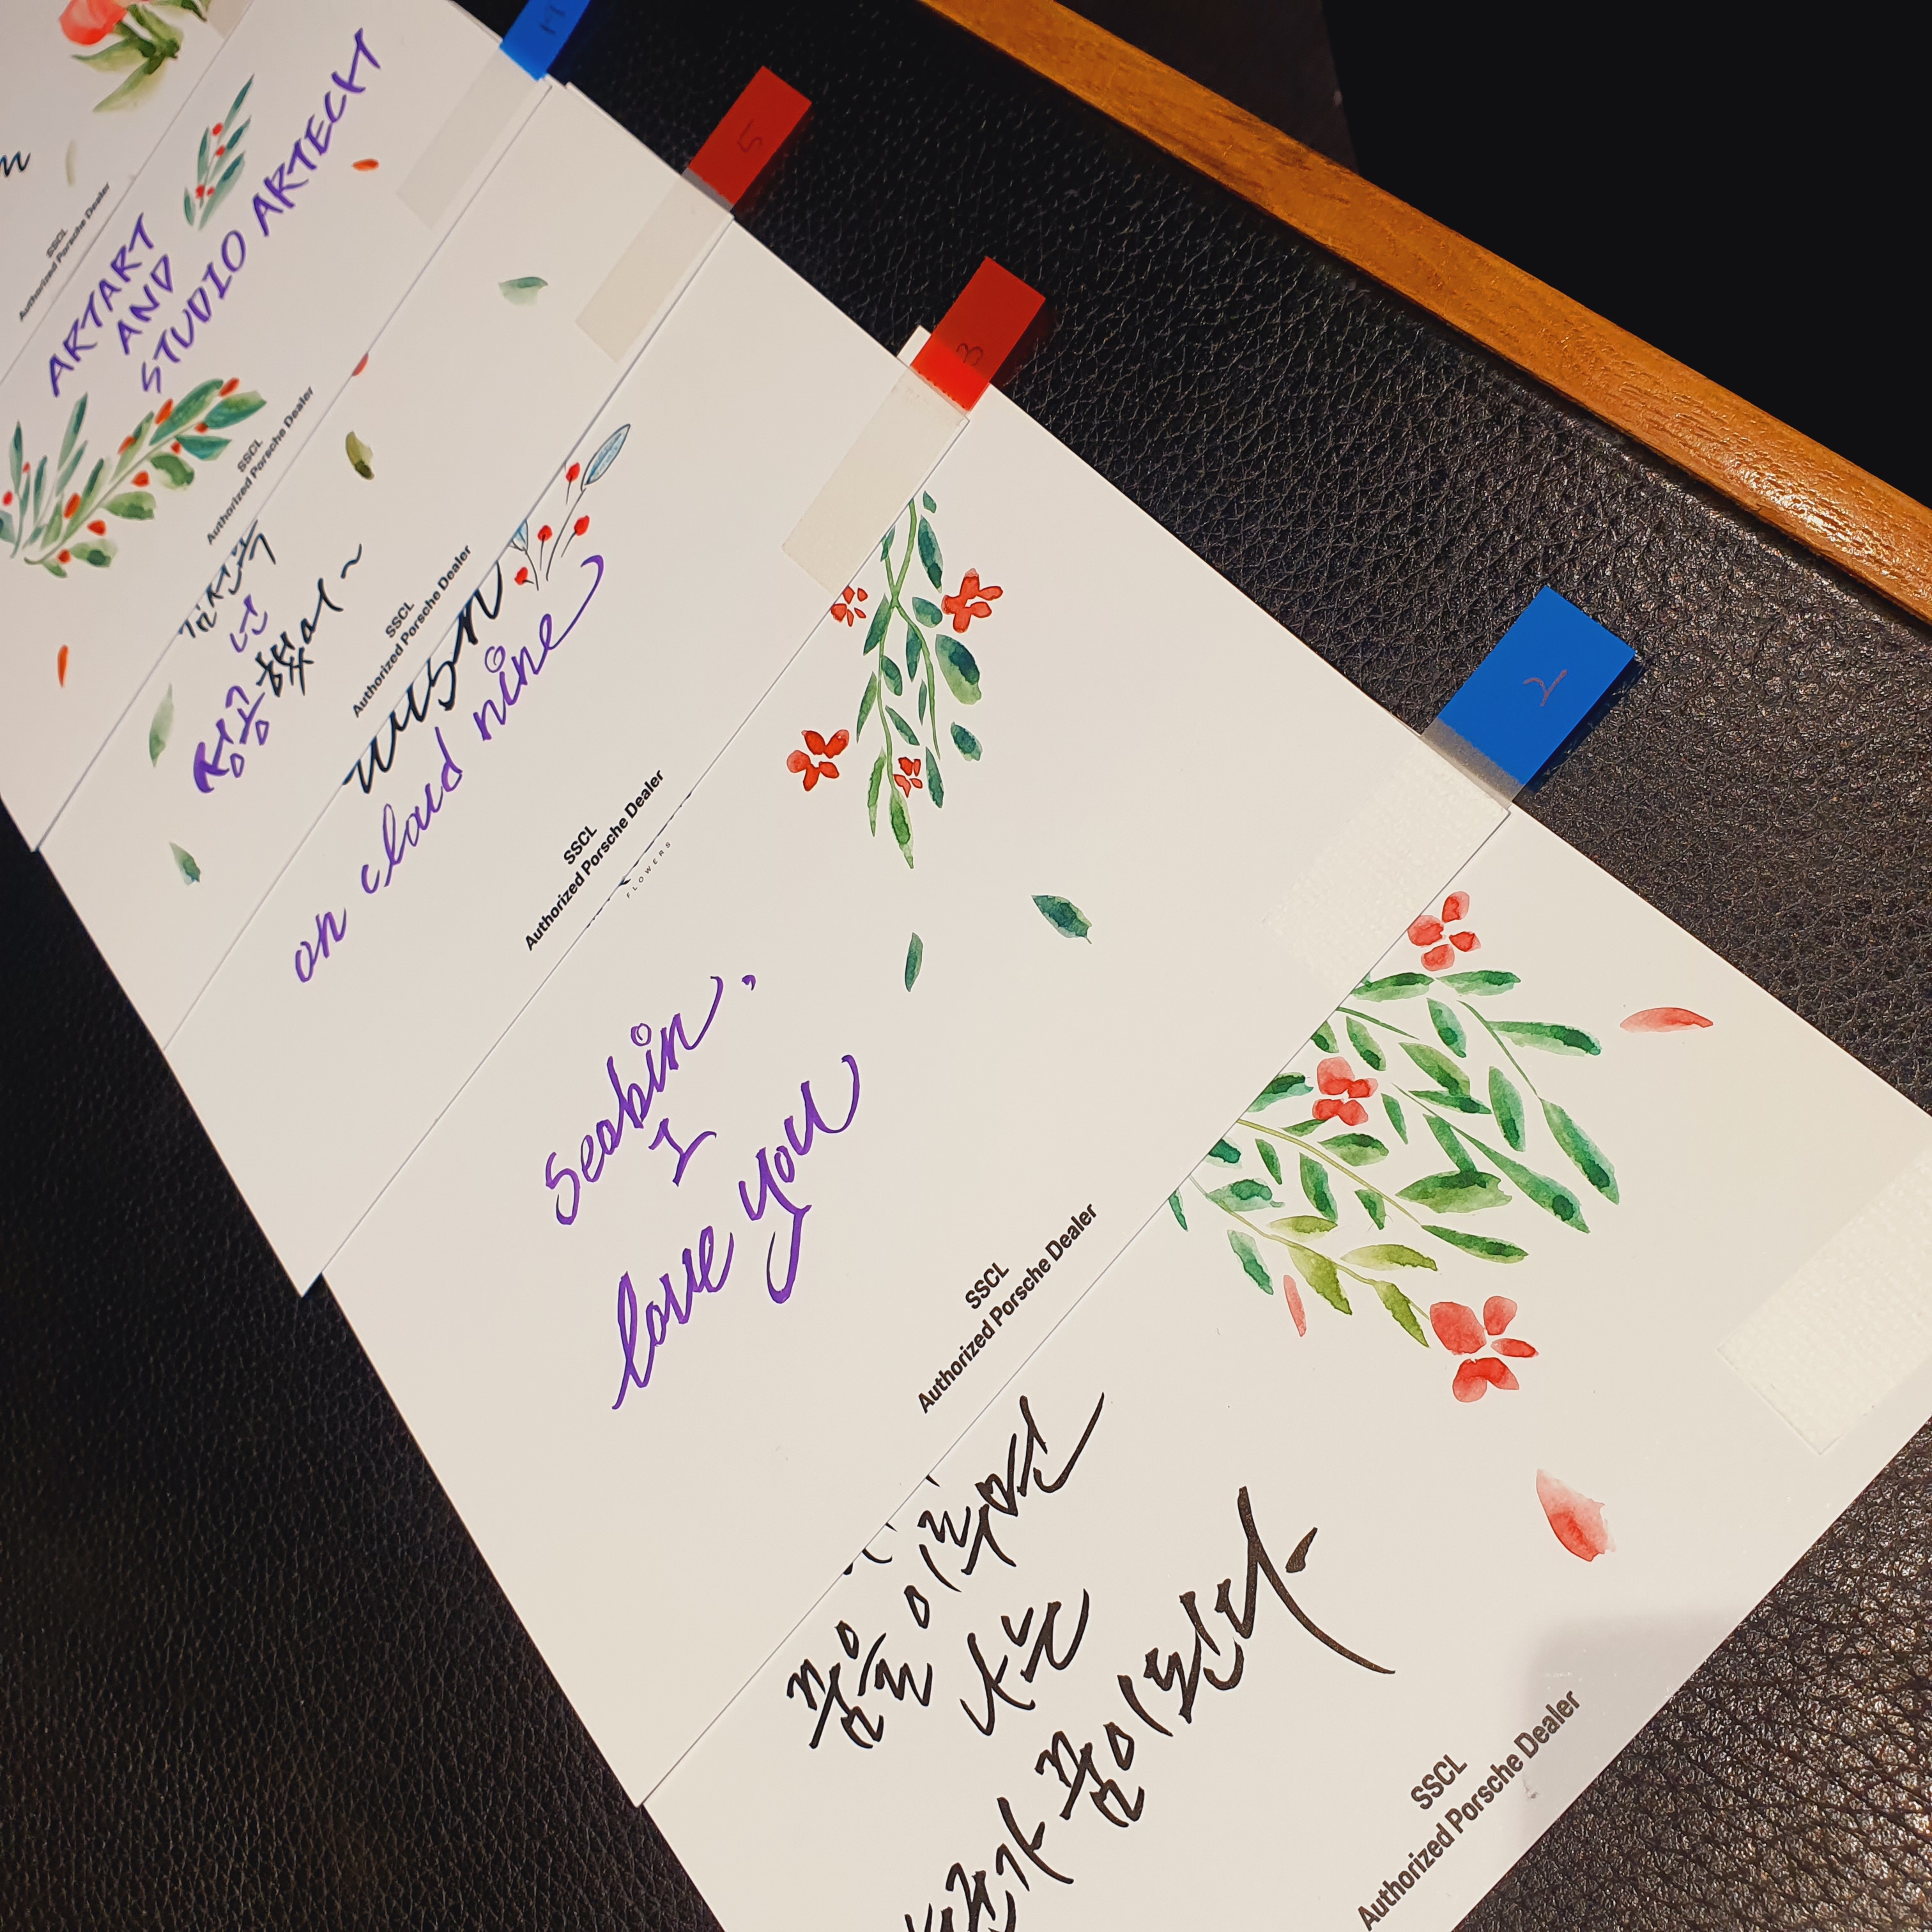 SSCL
Authorized Porsche Dealer
ARTART
AND
STUDIO ARTECH
SSCL
Authorized Porsche Dealer
넌
성공했어~
SSCL
Authorized Porsche Dealer
on cloud nine
SSCL
Authorized Porsche Dealer
FLOWERS
seobin,
I
love you
SSCL
Authorized Porsche Dealer
꿈을 이루면
나는
꿈이 된다
SSCL
Authorized Porsche Dealer
5
3
2